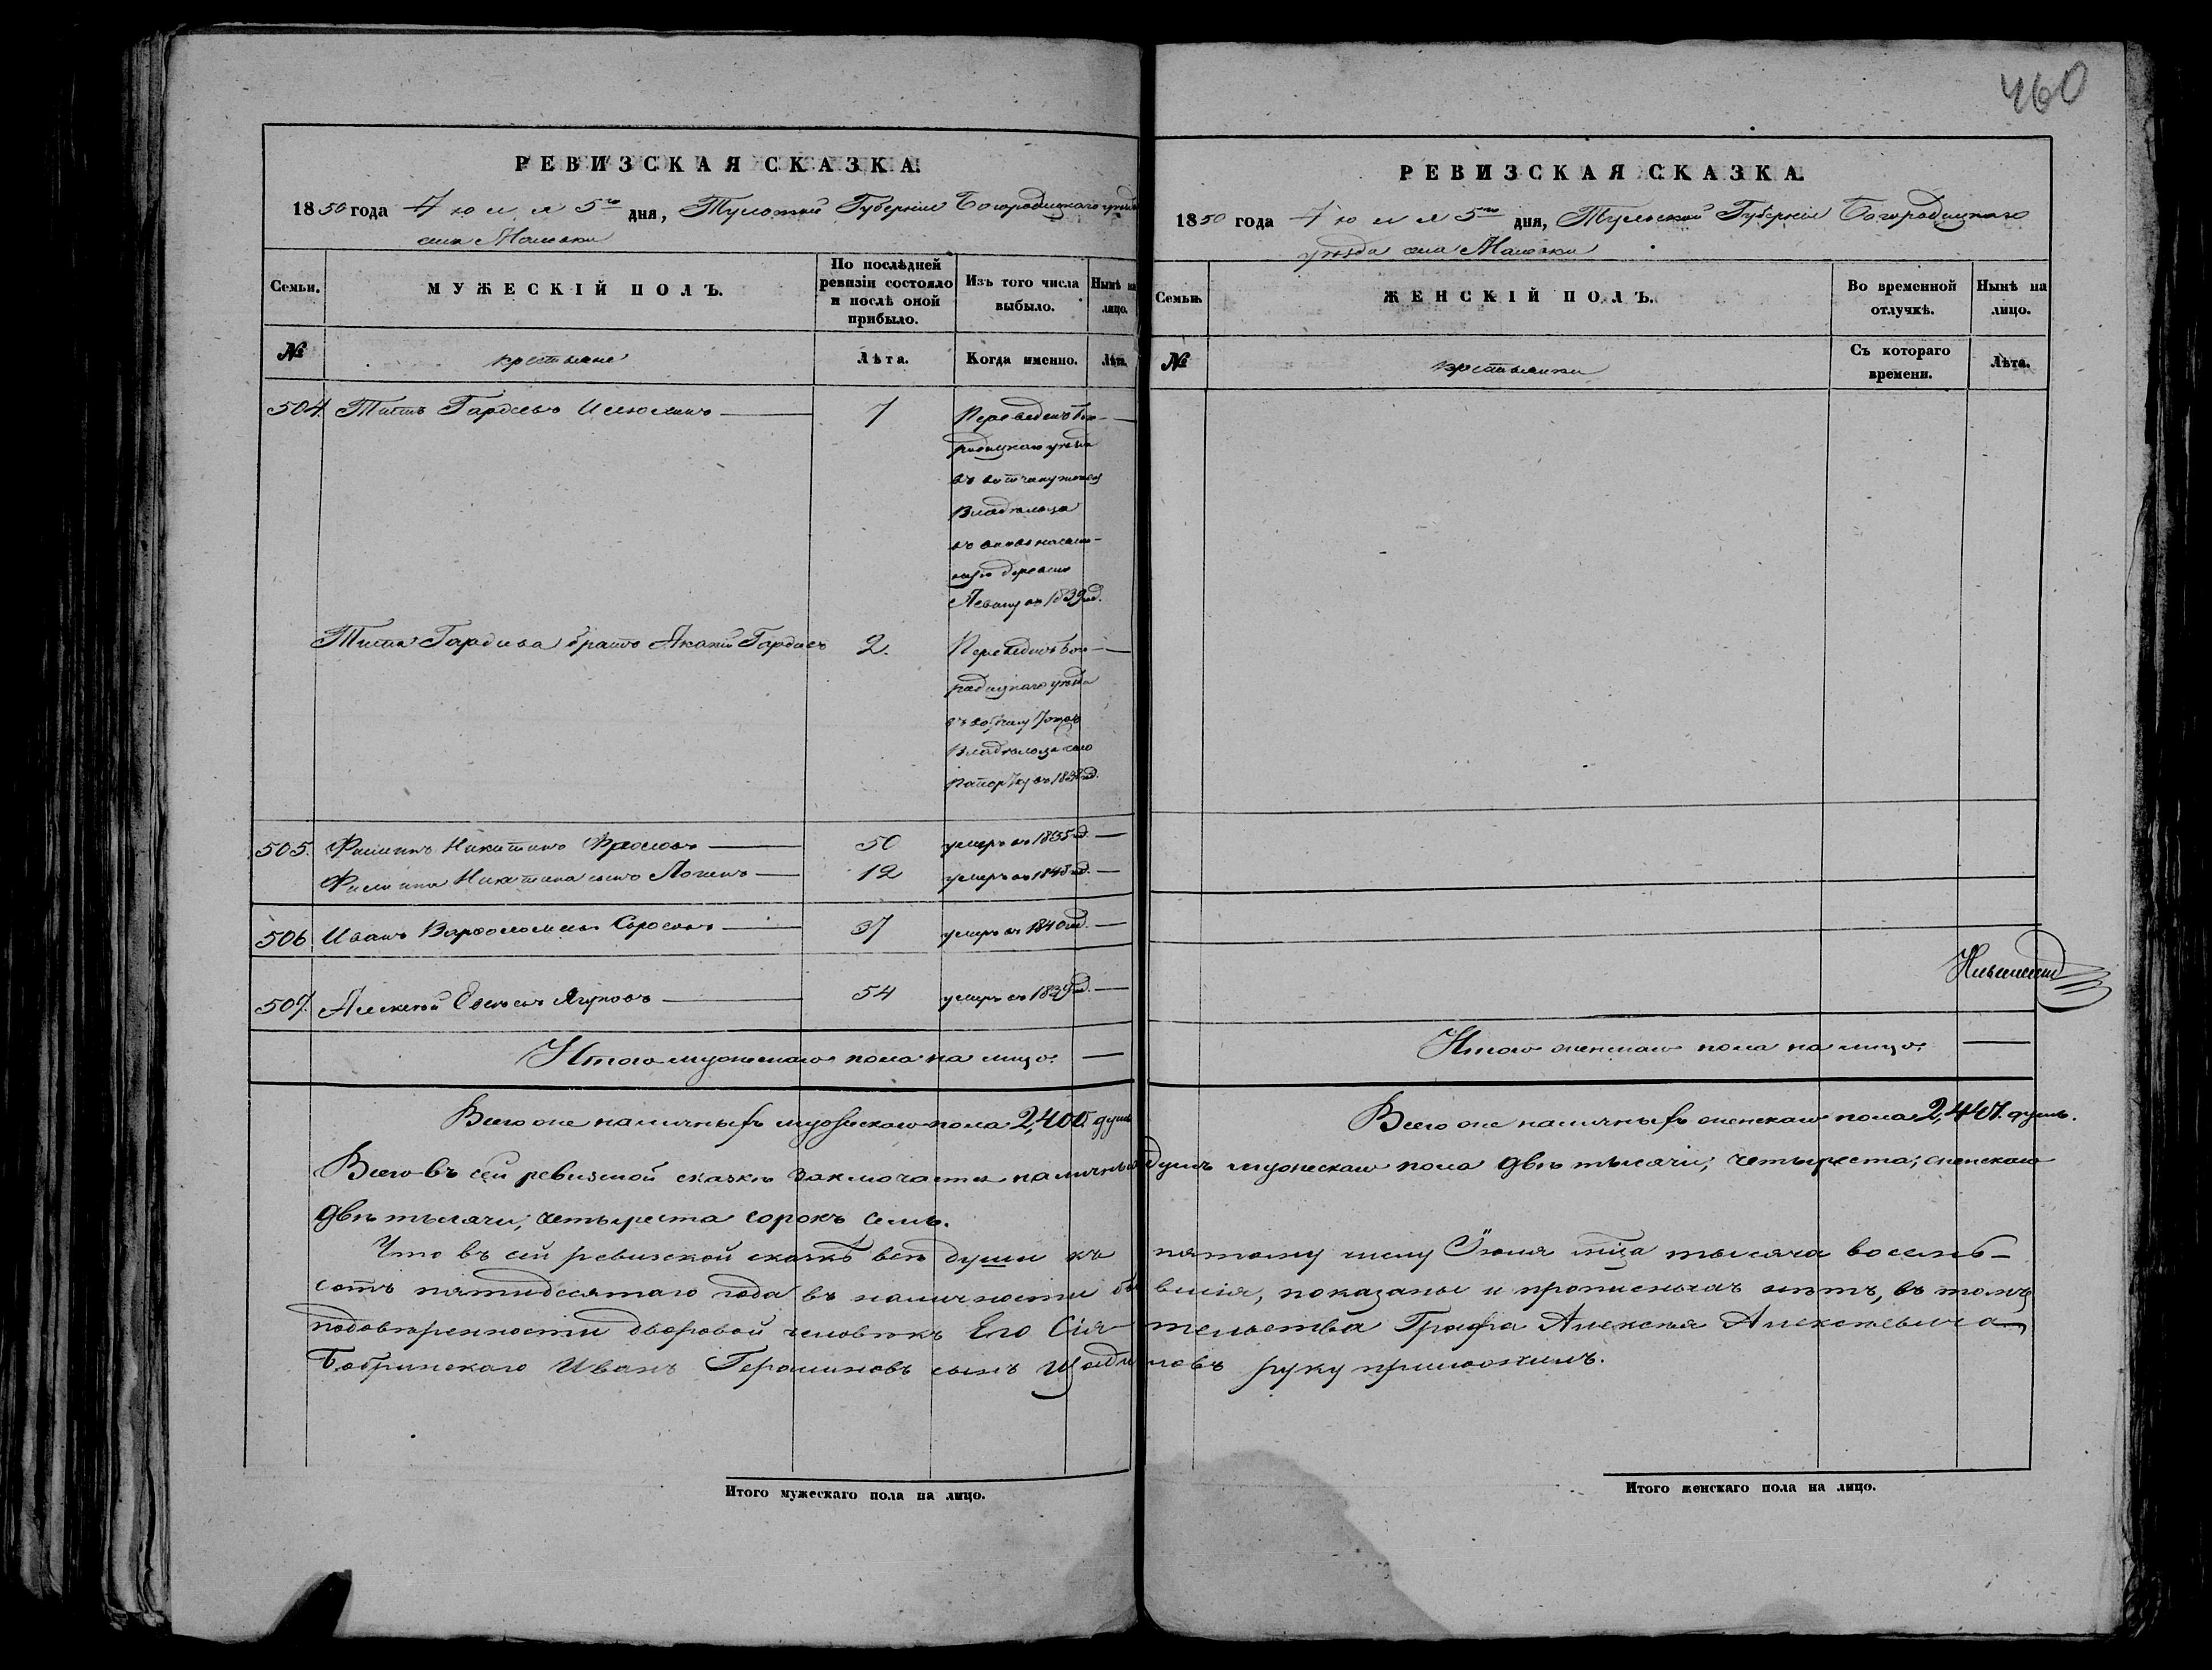 460
РЕВИЗСКАЯ СКАЗКА.
1850 года Іюля 5го дня, Тульской Губерніи Богородицкаго уѣзда
села Малевки
Семьи.
МУЖЕСКІЙ ПОЛЪ.
По послѣдней ревизіи состояло и послѣ оной прибыло.
Изъ того числа выбыло.
Нынѣ на лицо.
№
крестьяне
Лѣта.
Когда именно.
Лѣта.
504. Титъ Гордѣевъ 7 Переведенъ Бого-
родицкаго уѣзда
въ вотчину того
Владѣльца
въ
деревню
въ 1839 год.
Тита Гордѣева братъ Акакій Гордѣевъ 2. Переведенъ Бого-
родицкаго уѣзда
въ вотчину того
Владѣльца село
въ 183 год.
505. Филипъ Никитинъ Фроловъ 50 умеръ въ 1835 год.
Филипа Никитина сынъ Логинъ 12 умеръ въ 184 год.
506. Иванъ Варфоломеевъ 37 умеръ въ 1840 год.
507. Алексѣй Евсѣевъ Ягуновъ 54 умеръ въ 1839 год.
Итого мужескаго пола на лицо.
Всего же наличныхъ мужескаго пола 2,400. душъ
РЕВИЗСКАЯ СКАЗКА.
1850 года Іюля 5го дня, Тульской Губерніи Богородицкаго
уѣзда села Малевки
Семьи.
ЖЕНСКІЙ ПОЛЪ.
Во временной отлучкѣ.
Нынѣ на лицо.
№
крестьянки
Съ котораго времени.
Лѣта.
Итого женскаго пола на лицо.
Всего же наличныхъ женскаго пола 2,447. душъ.
Всего въ сей ревизской сказкѣ заключается наличныхъ душъ мужескаго пола двѣ тысячи, четыреста; женскаго
двѣ тысячи, четыреста сорокъ семь.
Что въ сей ревизской сказкѣ всѣ души къ пятому числу Іюля мѣца тысяча восемь-
сотъ пятидесятаго года въ наличности бывшія, показаны и прописныхъ нѣтъ, въ томъ
по довѣренности дворовой человѣкъ Его Сіятельства Графа Алексѣя Алексѣевича
Бобринскаго Иванъ сынъ руку приложилъ.
Итого мужескаго пола на лицо.
Итого женскаго пола на лицо.